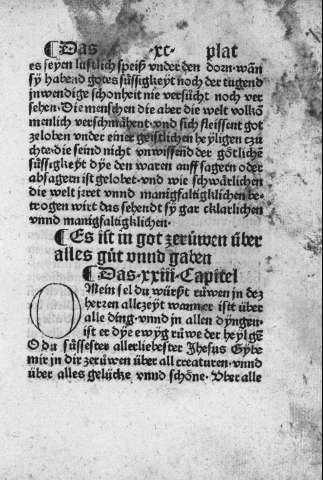 ¶ Das ·xc· plat
es seyen lustlich speiß vnder den dorn· wān
sÿ habend gotes süssigkeyt noch der tugend
jnwendige schonheit nie versücht noch ver
sehen· Die menschen die aber die welt volkō
menlich verschmähent· vnd sich fleissent got
zeloben vnder einer geistlichen heyligen czu
chte· die seind nicht vnwissend der götlichē
süssigkeyt dÿe den waren auff sagern oder
absagern ist gelobet· vnd wie schwärlichen
die welt jrret vnnd manigfaltigklichen be-
trogen wirt das sehendt sÿ gar cklarlichen
vnnd manigfaltigklichen·
¶ Es ist in got zerüwen über
alles güt vnnd gaben
¶ Das·xxiii·Capitel
O Mein sel du würst rüwen in dez
herzen allezeÿt wann er ist über
alle ding· vnnd in allen dÿngen·
ist er dÿe ewÿg rüwe der heylgē
O du süssester allerliebester Jhesus Gybe
mir in dir zerüwen über all creaturen· vnnd
über alles gelücke vnnd schöne· Vber alle